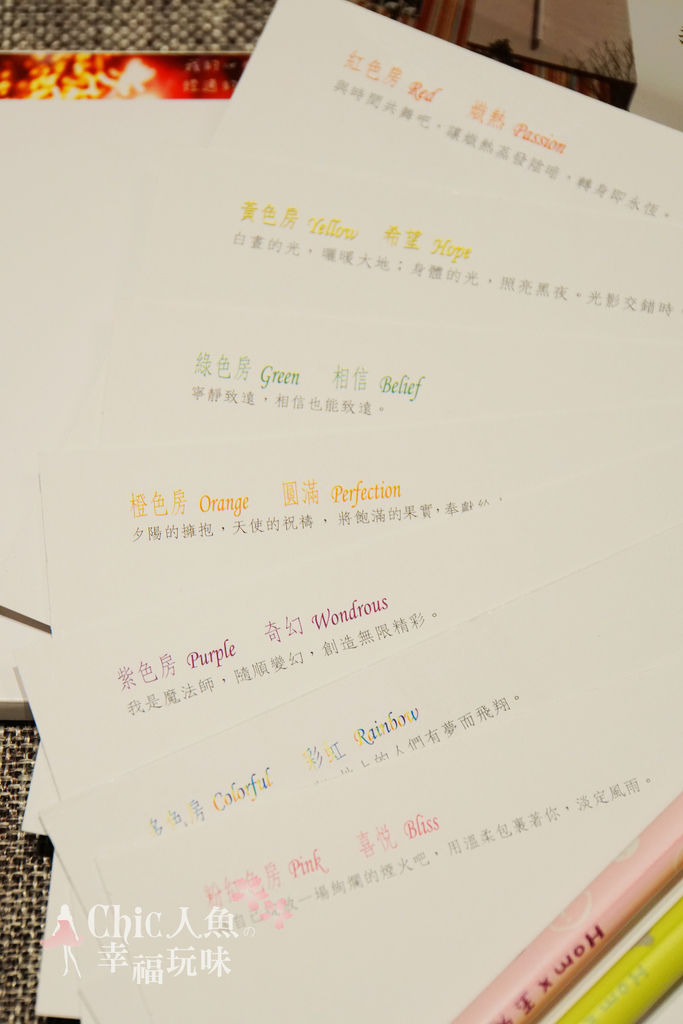 紅色房 Red 熾熱 Passion
與時間共舞吧，讓熾熱蒸發陰暗，轉身即永恆。
黃色房 Yellow 希望 Hope
白晝的光，曬暖大地；身體的光，照亮黑夜。光影交錯時，
綠色房 Green 相信 Belief
寧靜致遠，相信也能致遠。
橙色房 Orange 圓滿 Perfection
夕陽的擁抱，天使的祝禱，將飽滿的果實，奉獻
紫色房 Purple 奇幻 Wondrous
我是魔法師，隨順變幻，創造無限精彩。
多色房 Colorful 彩虹 Rainbow
的人們有夢而飛翔。
粉紅色房 Pink 喜悅 Bliss
一場絢爛的煙火吧，用溫柔包裹著你，淡定風雨。
Hom x 玉
Hom
Chic人魚の
幸福玩味